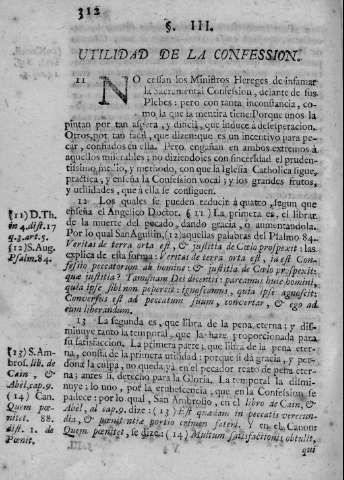 312
§. III.
UTILIDAD DE LA CONFESSION.
11 NO cessan los Ministros Hereges de infamar
la Sacramental Confession, delante de sus
Plebes: pero con tanta inconstancia, co-
mo la que la mentira tiene: Porque unos la
pintan por tan aspera, y dificil, que induce à desesperacion.
Otros, por tan facil, que dizen que es un incentivo para pe-
car, confiados en ella. Pero, engañan en ambos extremos à
aquellos miserables; no diziendoles con sinceridad el pruden-
tissimo medio, y methodo, con que la Iglesia Catholica sigue,
practica, y enseña la Confession vocal; y los grandes frutos,
y utilidades, que à ella se consiguen.
12 Los quales se pueden reducir à quatro, segun que
enseña el Angelico Doctor. § 11) La primera es, el librar
de la muerte del pecado, dando gracia, ò aumentandola.
Por lo qual San Agustin, (12) aquellas palabras del Psalmo 84.
Veritas de terra orta est, & justitia de Cœlo prospexit: las
explica de esta forma: Veritas de terra orta est, id est Con-
fessio peccatorum ab homine: & justitia de Cœlo prospexit:
quæ justitia? Tamquam Dei dicentis: parcamus huic homini,
quia ipse sibi non pepercit: ignoscamus, quia ipse agnoscit:
Conversus est ad peccatum suum, convertar, & ego ad
eum liberandum.
13 La segunda es, que libra de la pena eterna; y dis-
minuye tanto la temporal, que la haze proporcionada para
su satisfaccion. La primera parte; que libra de la pena eter-
na, consta de la primera utilidad: porque si dà gracia, y per-
dona la culpa, no queda ya en el pecador reato de pena eter-
na; antes si, derecho para la Gloria. La temporal la dismi-
nuye: lo uno, por la erubescencia, que en la Confession se
padece: por lo qual, San Ambrosio, en el libro de Cain, &
Abel, al cap. 9. dize: (13) Est quædam in peccatis verecun-
dia, & pœnitentiæ portio crimen fateri. Y en el Canon
Quem pœnitet, se dize: (14) Multum satisfactionis obtulit,
qui
(11) D. Th.
in 4. dist. 17
q. 3. art. 5.
(12) S. Aug.
Psalm. 84.
(13) S. Am-
bros. lib. de
Cain, &
Abel, cap. 9.
(14) Can.
Quem pœ-
nitet. 88.
dist. 1. de
Pœnit.